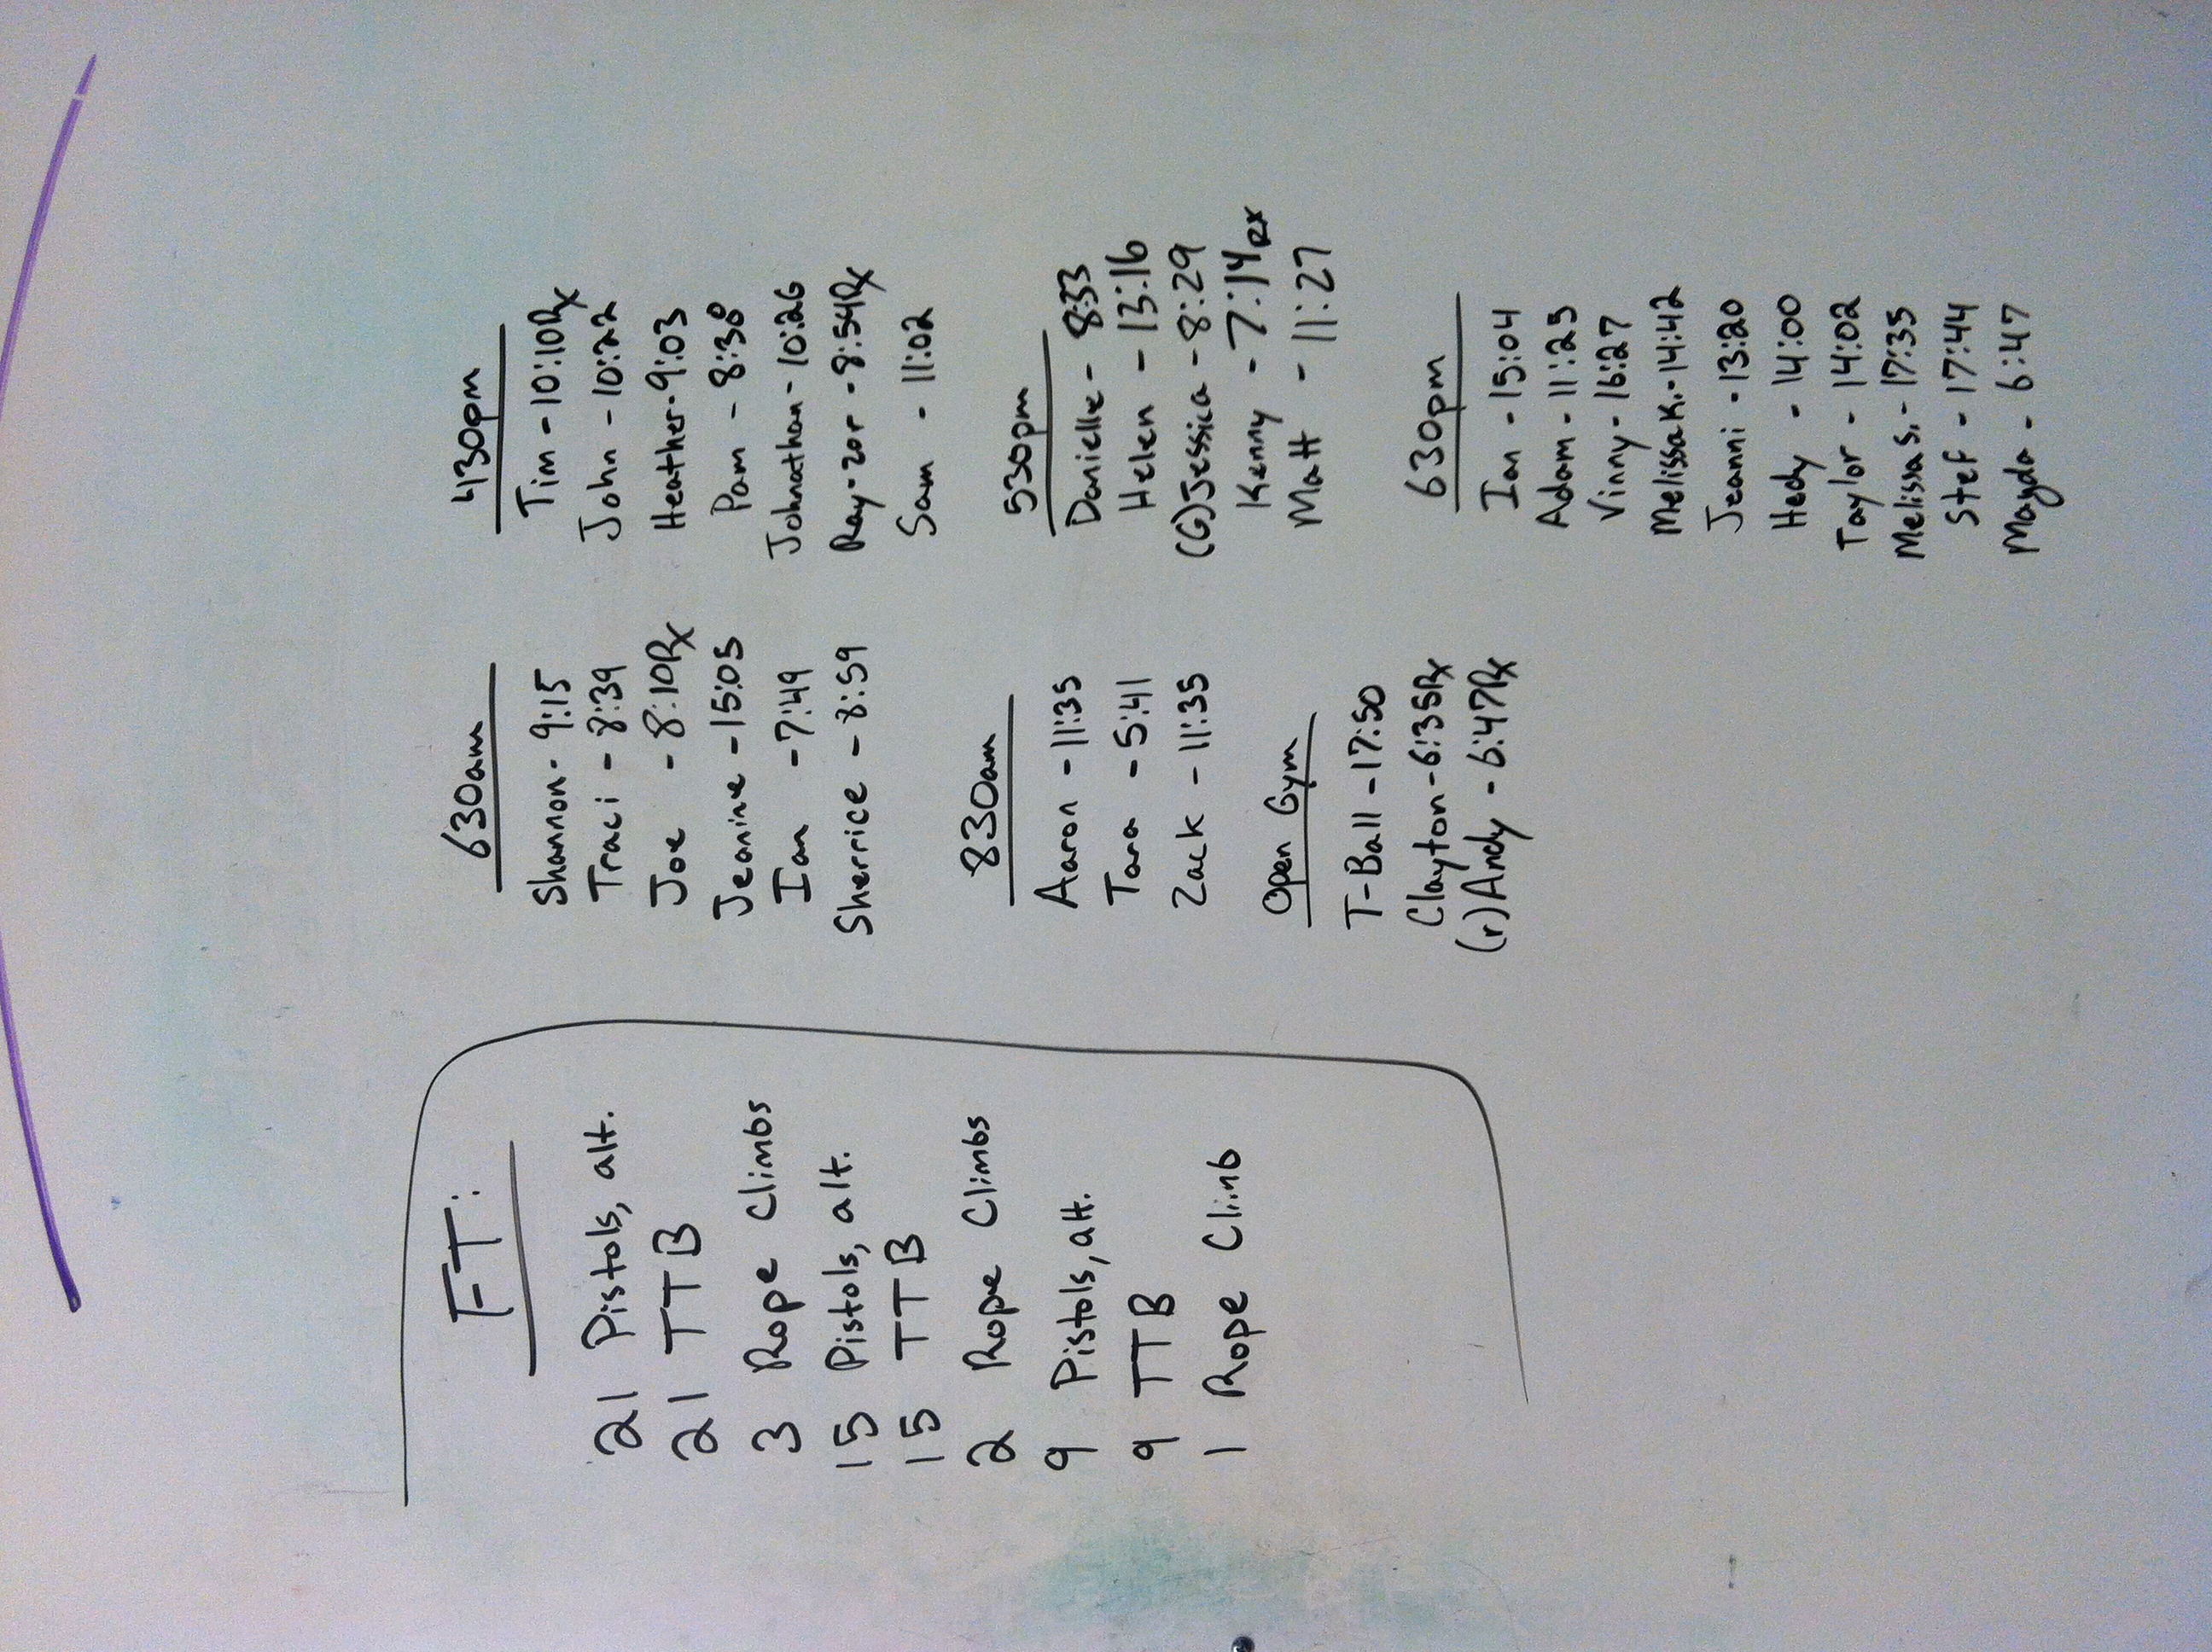 FT:
21 Pistols, alt.
21 TTB
3 Rope Climbs
15 Pistols, alt.
15 TTB
2 Rope Climbs
9 Pistols, alt.
9 TTB
1 Rope Climb
630am
Shannon - 9:15
Traci - 8:39
Joe - 8:10Rx
Jeanine - 15:05
Ian - 7:49
Sherrice - 8:59
830am
Aaron - 11:35
Tara - 5:41
Zack - 11:35
Open Gym
T-Ball - 17:50
Clayton - 6:35Rx
(r)Andy - 6:47Rx
430pm
Tim - 10:10Rx
John - 10:22
Heather - 9:03
Pam - 8:38
Johnathan - 10:26
Ray-zor - 8:54Rx
Sam - 11:02
530pm
Danielle - 8:33
Helen - 13:16
(G)Jessica - 8:29
Kenny - 7:14Rx
Matt - 11:27
630pm
Ian - 15:04
Adam - 11:25
Vinny - 16:27
Melissa K. - 14:42
Jeanni - 13:20
Hedy - 14:00
Taylor - 14:02
Melissa S. - 17:35
Stef - 17:44
Magda - 6:47